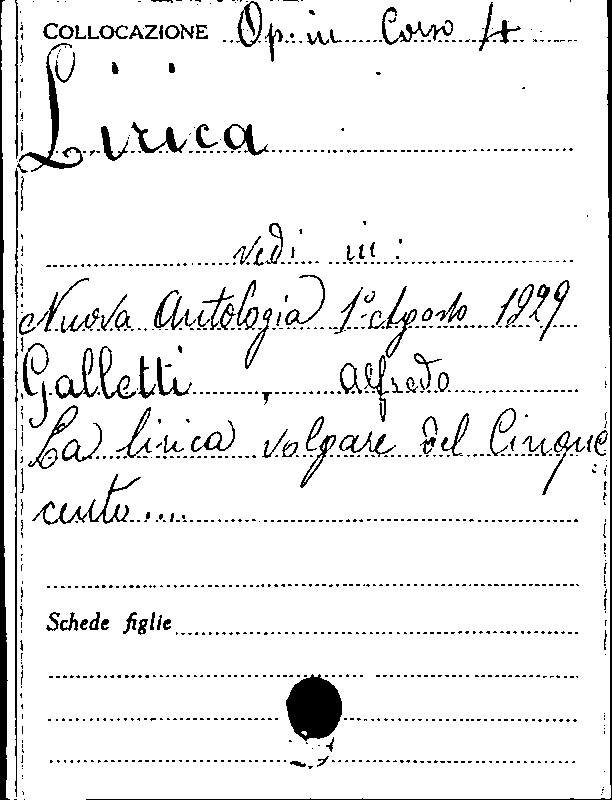 COLLOCAZIONE Op. in Corso 4
Lirica
vedi in:
Nuova Antologia 1° Agosto 1929
Galletti, Alfredo
La lirica volgare del Cinque
cento....
Schede figlie